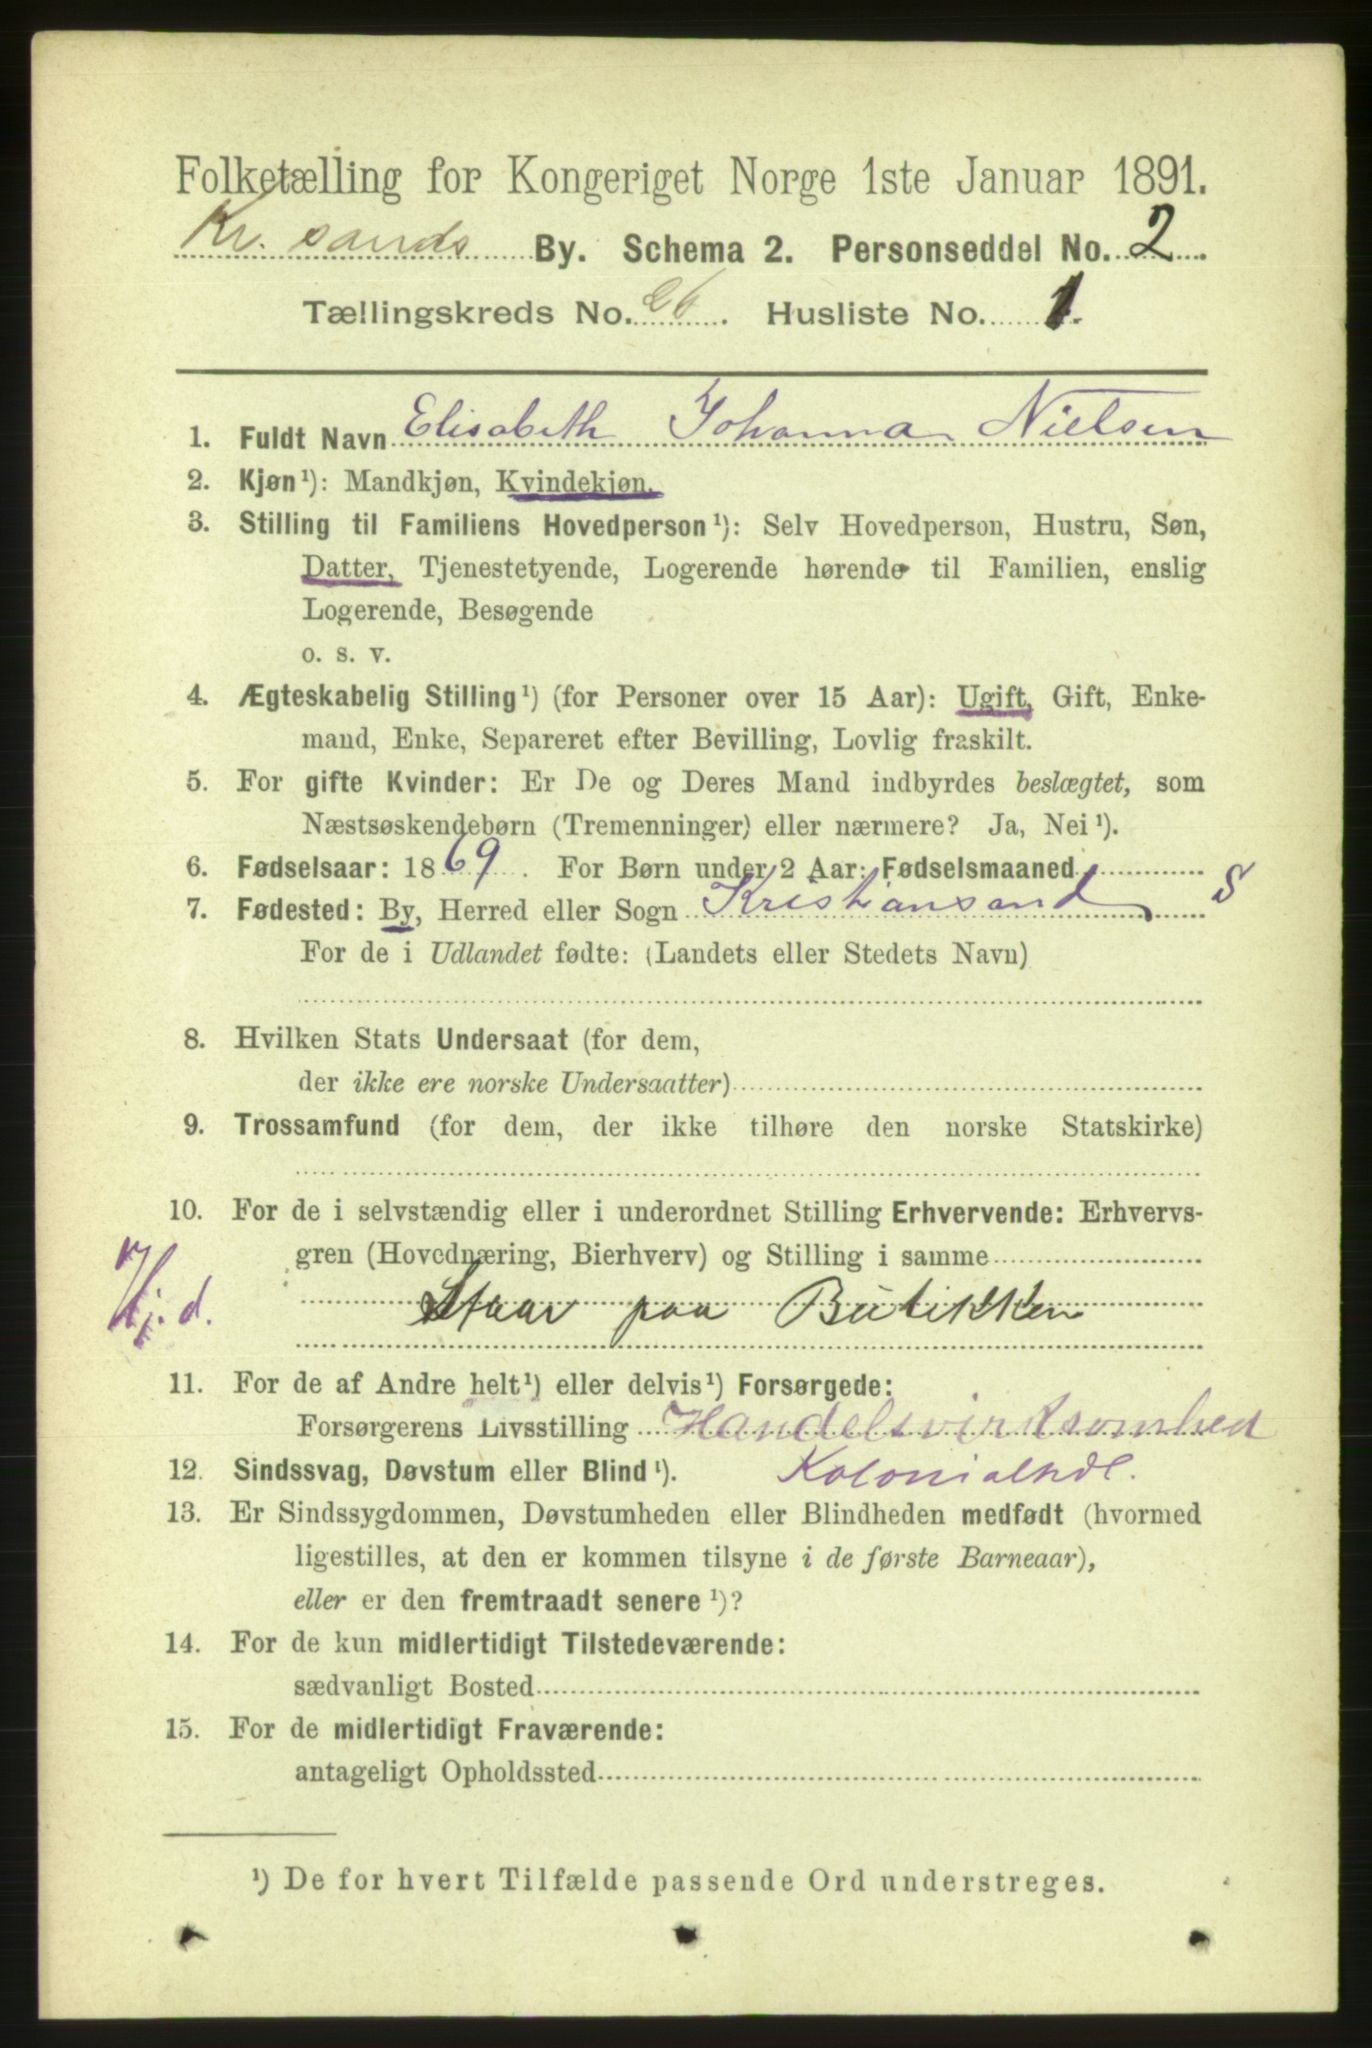 Folketælling for Kongeriget Norge 1ste Januar 1891.
Kr. sands By. Schema 2. Personseddel No. 2.
Tællingskreds No. 26. Husliste No. 1.
1. Fuldt Navn Elisabeth Johanna Nielsen
2. Kjøn¹): Mandkjøn, Kvindekjøn.
3. Stilling til Familiens Hovedperson¹): Selv Hovedperson, Hustru, Søn,
Datter, Tjenestetyende, Logerende hørende til Familien, enslig
Logerende, Besøgende
o. s. v.
4. Ægteskabelig Stilling¹) (for Personer over 15 Aar): Ugift, Gift, Enke-
mand, Enke, Separeret efter Bevilling, Lovlig fraskilt.
5. For gifte Kvinder: Er De og Deres Mand indbyrdes beslægtet, som
Næstsøskendebørn (Tremenninger) eller nærmere? Ja, Nei¹).
6. Fødselsaar: 1869. For Børn under 2 Aar: Fødselsmaaned
7. Fødested: By, Herred eller Sogn Kristiansand S
For de i Udlandet fødte: (Landets eller Stedets Navn)
8. Hvilken Stats Undersaat (for dem,
der ikke ere norske Undersaatter)
9. Trossamfund (for dem, der ikke tilhøre den norske Statskirke)
10. For de i selvstændig eller i underordnet Stilling Erhvervende: Erhvervs-
gren (Hovednæring, Bierhverv) og Stilling i samme
Hj. d. Staar paa Butikken
11. For de af Andre helt¹) eller delvis¹) Forsørgede:
Forsørgerens Livsstilling Handelsvirksomhed
12. Sindssvag, Døvstum eller Blind¹). Kolonialhdl.
13. Er Sindssygdommen, Døvstumheden eller Blindheden medfødt (hvormed
ligestilles, at den er kommen tilsyne i de første Barneaar),
eller er den fremtraadt senere¹)?
14. For de kun midlertidigt Tilstedeværende:
sædvanligt Bosted
15. For de midlertidigt Fraværende:
antageligt Opholdssted
¹) De for hvert Tilfælde passende Ord understreges.